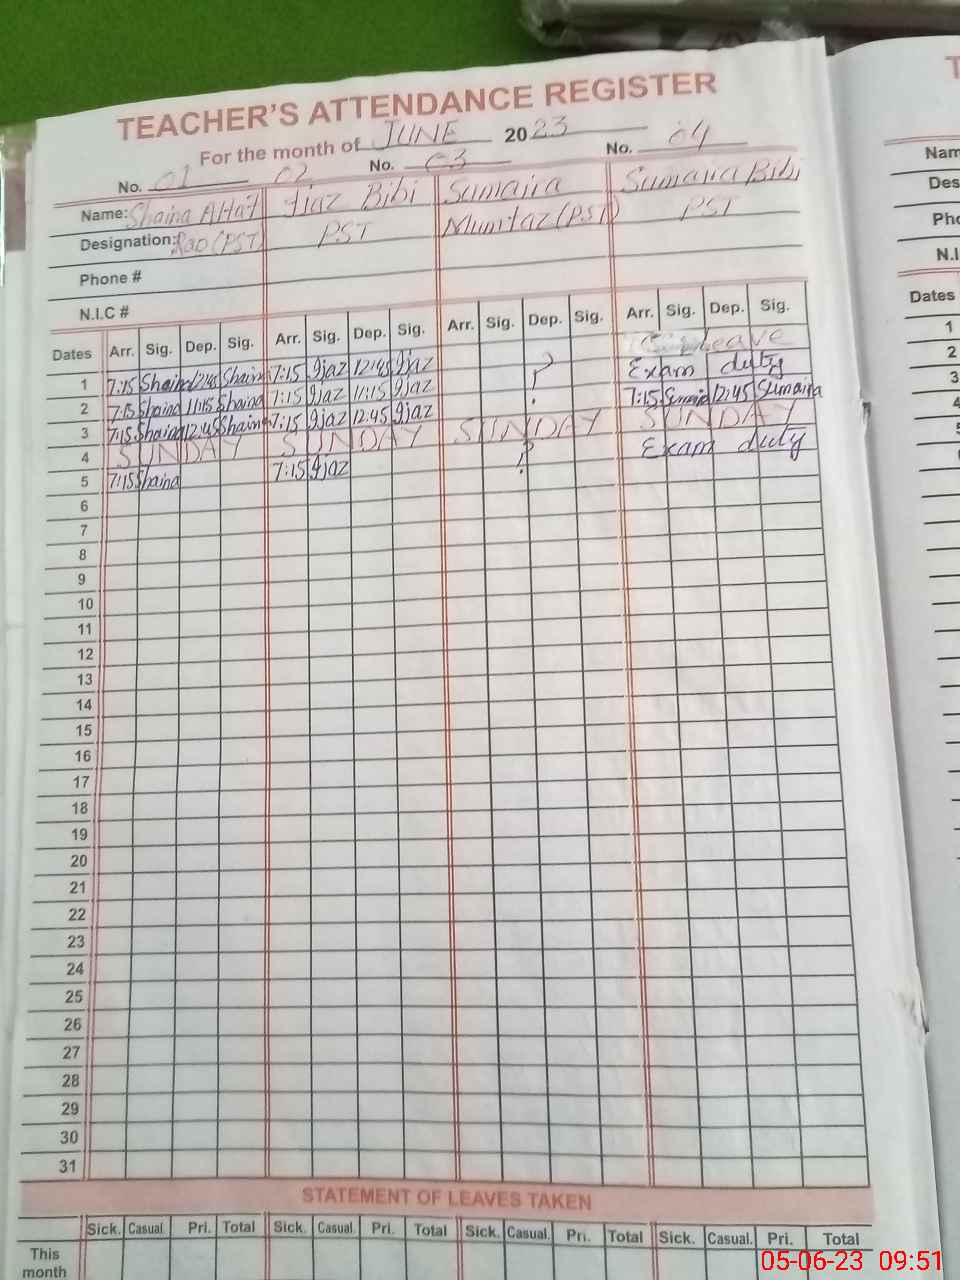 TEACHER'S ATTENDANCE REGISTER
For the month of JUNE 2023
No. 01 02 No. 03 No. 04
Name: Shaina Altaf Ijaz Bibi Sumaira Sumaira Bibi
Designation: Rao (PST) PST Mumtaz (PST) PST
Phone #
N.I.C #
Dates Arr. Sig. Dep. Sig. Arr. Sig. Dep. Sig. Arr. Sig. Dep. Sig. Arr. Sig. Dep. Sig.
Leave
1 7:15 Shaina 12:45 Shaina 7:15 Ijaz 12:45 Ijaz ? Exam duty
2 7:15 Shaina 11:15 Shaina 7:15 Ijaz 11:15 Ijaz 7:15 Sumaira 12:45 Sumaira
3 7:15 Shaina 12:45 Shaina 7:15 Ijaz 12:45 Ijaz
4 SUNDAY SUNDAY SUNDAY SUNDAY
5 7:15 Shaina 7:15 Ijaz ? Exam duty
6
7
8
9
10
11
12
13
14
15
16
17
18
19
20
21
22
23
24
25
26
27
28
29
30
31
STATEMENT OF LEAVES TAKEN
Sick. Casual. Pri. Total Sick. Casual. Pri. Total Sick. Casual. Pri. Total Sick. Casual. Pri. Total
This month
T
Nam
Des
Pho
N.I
Dates
1
2
3
4
5
05-06-23 09:51